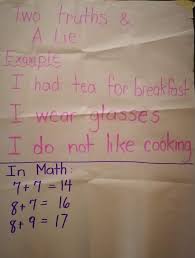 Two truths &
A Lie
Example
I had tea for breakfast
I wear glasses
I do not like cooking
In Math:
7+7=14
8+7= 16
8+9= 17